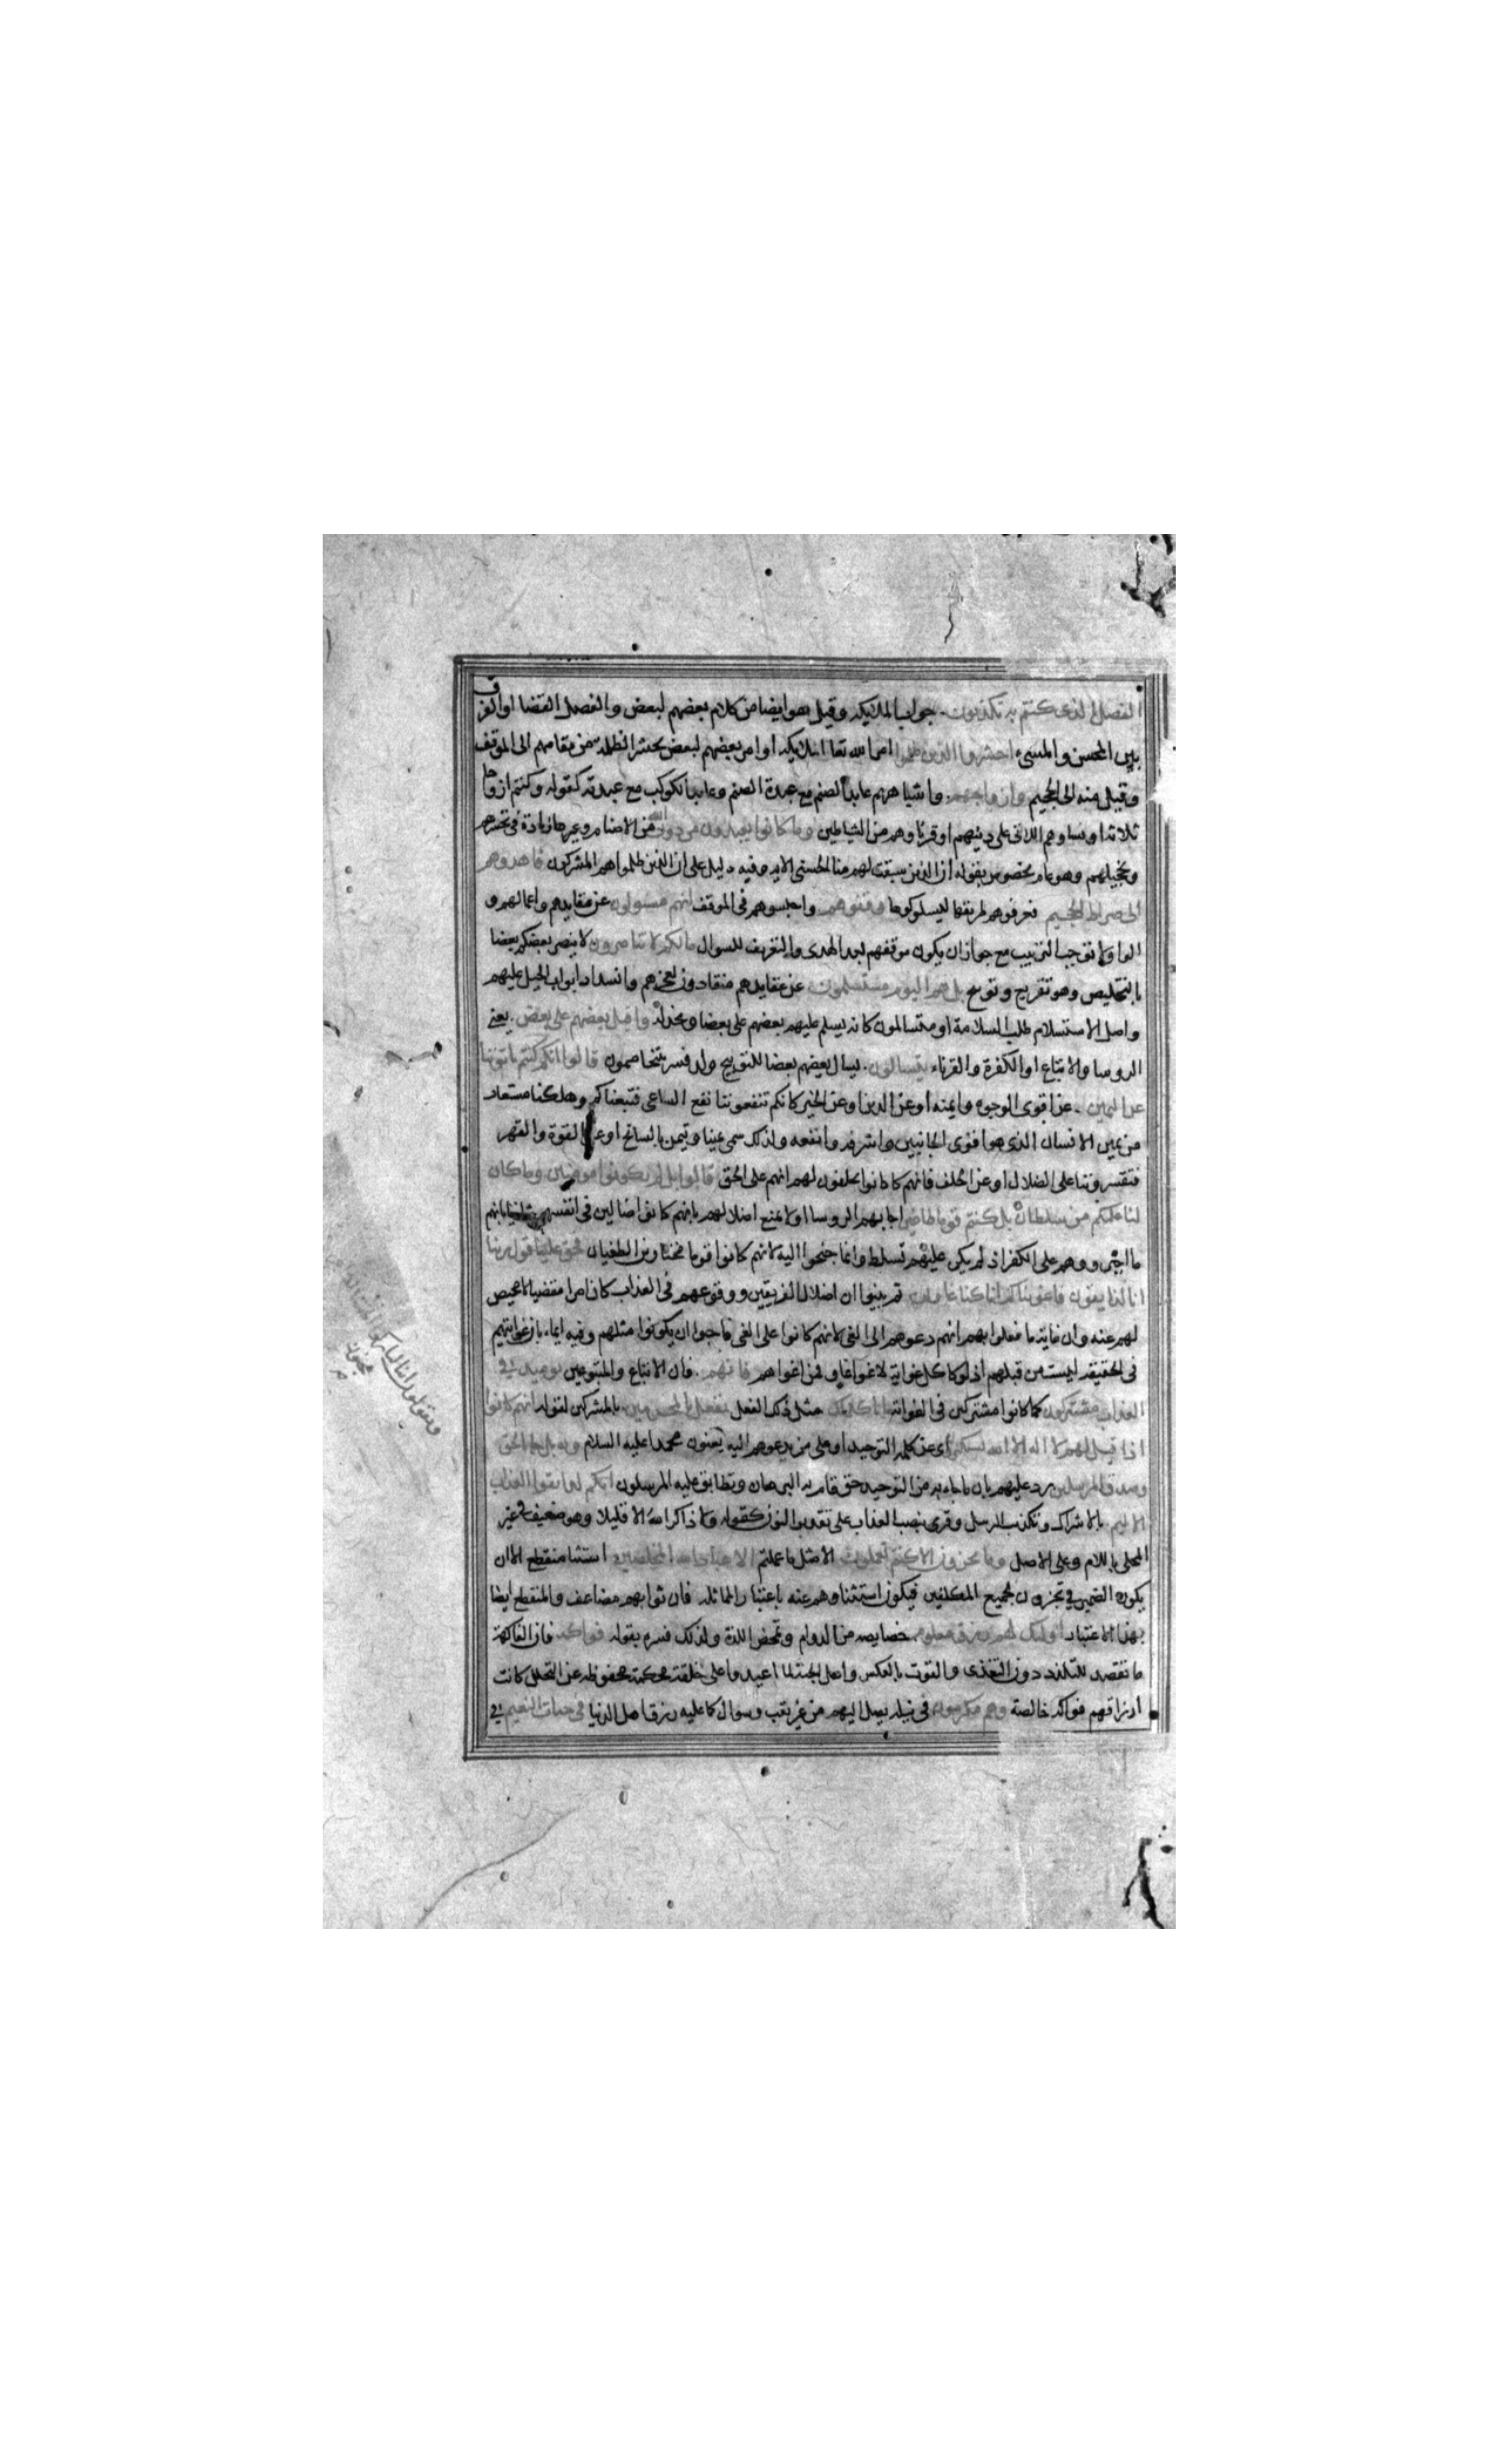 الفصل الذى كنتم به تكذبون جواب الملايكة وقيل هو ايضا من كلام بعضهم لبعض والفصل القضا او الفرق
بين المحسن والمسىء احشروا الذين ظلموا امر الله تعا الملايكة او امر بعضهم لبعض بحشر الظلمة من مقامهم الى الموقف
وقيل منه الى الجحيم وازواجهم واشباههم عابد الصنم مع عبدة الصنم وعابد الكوكب مع عبدته كقوله وكنتم ازواجا
ثلاثة او نساوهم اللاتى على دينهم او قرناوهم من الشياطين وما كانوا يعبدون من دون الله من الاصنام وغيرها زيادة فى تحسرهم
وتخجيلهم وهو عام مخصوص بقوله ان الذين سبقت لهم منا الحسنى الاية وفيه دليل على ان الذين ظلموا هم المشركون فاهدوهم
الى صراط الجحيم فعرفوهم طريقها ليسلكوها وقفوهم واحبسوهم فى الموقف انهم مسولون عن عقايدهم واعمالهم و
الواو لا توجب الترتيب مع جواز ان يكون موقفهم بعد الهدى والتعريف للسوال مالكم لا تناصرون لا ينصر بعضكم بعضا
بالتخليص وهو تقريع وتوبيخ بل هم اليوم مستسلمون عن عقايدهم منقادون لعجزهم وانسداد ابواب الحيل عليهم
واصل الاستسلام طلب السلامة او متسالمون كانه يسلم عليهم بعضهم على بعضا ويخذله واقبل بعضهم على بعض يعنى
الروسا والاتباع او الكفرة والقرناء يتسالون يسال بعضهم بعضا للتوبيخ ولذ فسر بتخاصمون قالوا انكم كنتم تاتوننا
عن اليمين عن اقوى الوجوه وايمنه او عن الدين او عن الخير كانكم تنفعوننا نفع الساعى فتبعناكم وهلكنا مستعار
من يمين الانسان الذى هو اقوى الجانبين واشرفه وانفعه ولذلك سمى يمينا وتيمن بالسانح او عن القوة والقهر
فتقسروننا على الضلال او عن الحلف فانهم كانوا يحلفون لهم انهم على الحق قالوا بل لم تكونوا مومنين وما كان
لنا عليكم من سلطان بل كنتم قوما طاغين اجابهم الروسا اولا بمنع اضلالهم بانهم كانوا ضالين فى انفسهم وثانيا بانهم
ما اجبروهم على الكفر اذ لم يكن عليهم تسلط وانما جنحوا اليه لانهم كانوا قوما مختارين الطغيان فحق علينا قول ربنا
انا لذايقون فاغويناكم انا كنا غاوين ثم بينوا ان اضلال الفريقين ووقوعهم فى العذاب كان امرا مقضيا لا محيص
لهم عنه وان غاية ما فعلوا بهم انهم دعوهم الى الغى لانهم كانوا على الغى فاحبوا ان يكونوا مثلهم وفيه ايماء بان غوايتهم
فى الحقيقة ليست من قبلهم اذ لو كا كل غواية لاغوا غاو فمن اغواهم فانهم فان الاتباع والمتبوعين يوميذ فى
العذاب مشتركون كما كانوا مشتركين فى الغواية انا كذلك مثل ذلك الفعل نفعل بالمجرمين بالمشركين لقوله انهم كانوا
اذا قيل لهم لا اله الا الله يستكبرون اى عن كلمة التوحيد او على من يدعوهم اليه يعنون محمدا عليه السلام وبه بل جا بالحق
وصدق المرسلين رد عليهم بان ما جاء به من التوحيد حق قام به البرهان وتطابق عليه المرسلون انكم لذايقوا العذاب
الاليم بالاشراك وتكذيب الرسل وقرى بنصب العذاب على تقدير النون كقوله ولا ذاكر الله الا قليلا وهو ضعيف فى غير
المحلى باللام وعلى الاصل وما تجزون الا كنتم تعملون الا مثل ما عملتم الا عباد الله المخلصين استثنا منقطع الا ان
يكون الضمير فى تجزون لجميع المكلفين فيكون استثناوهم عنه باعتبار المماثلة فان ثوابهم مضاعف والمنقطع ايضا
بهذا الاعتبار اوليك لهم رزق معلوم خصايصه من الدوام وتمحض اللذة ولذلك فسره بقوله فواكه فان الفاكهة
ما تقصد للتلذذ دون التغذى والقوت بالعكس واهل الجنة لما اعيدوا على خلقة محكمة محفوظة عن التحلل كانت
ارزاقهم فواكه خالصة وهم مكرمون فى نيله يصل اليهم من غير تعب وسوال كما عليه رزق اهل الدنيا فى جنات النعيم فى
ويقولون اينا لتاركوا الهتنا لشاعر
مجنون